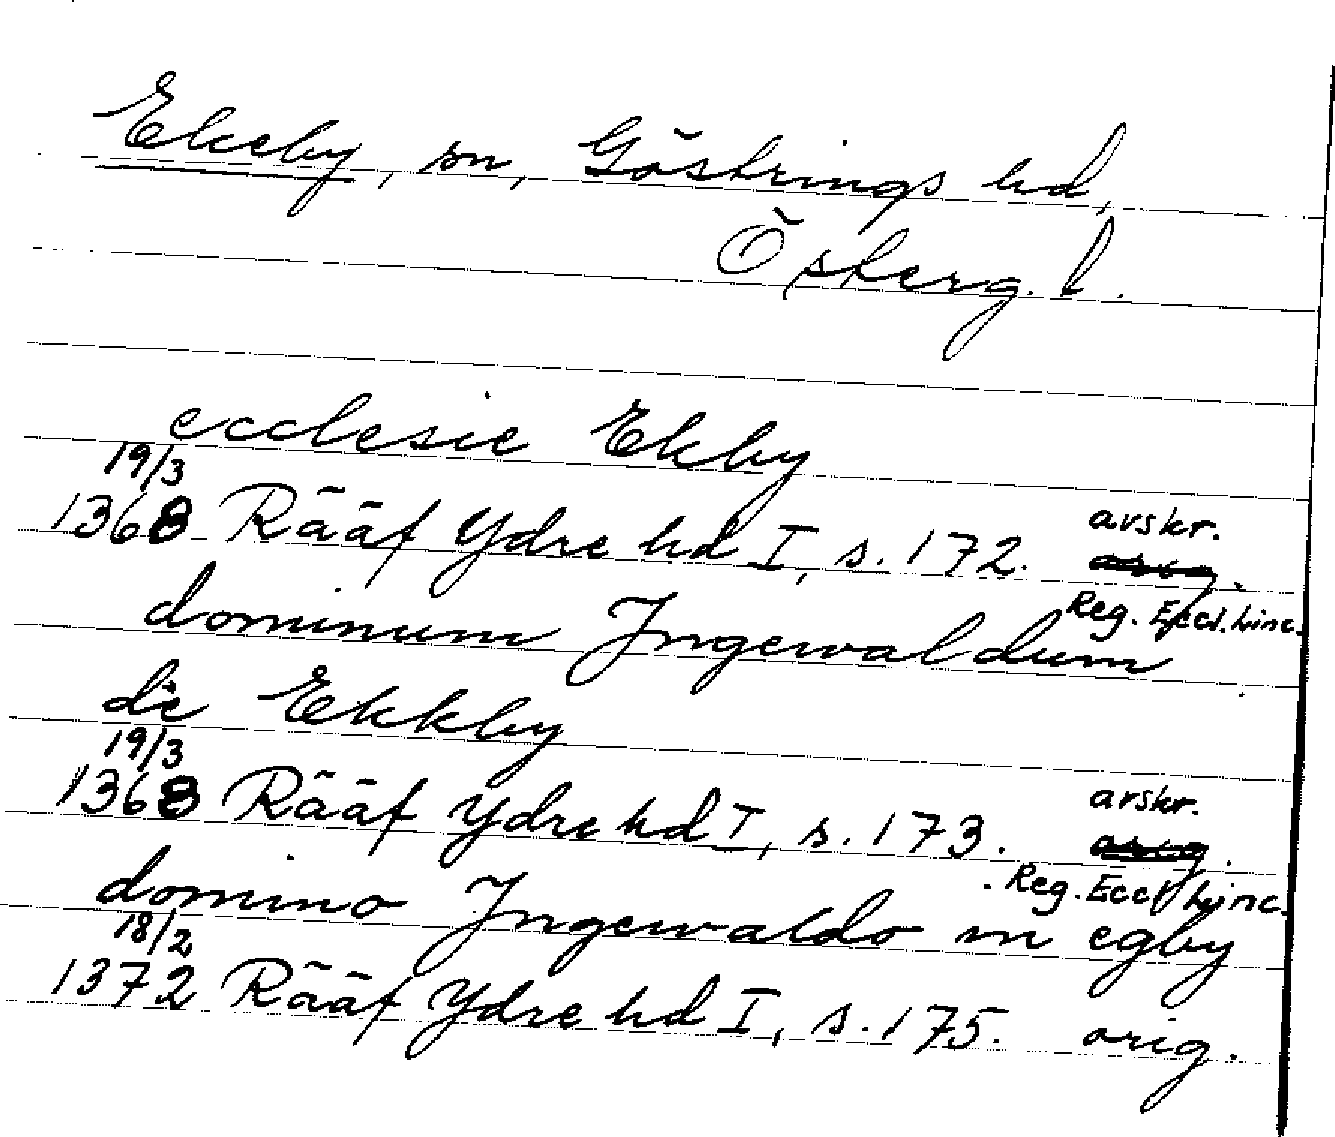 Ekeby, sn, Göstrings hd,
Österg. l.
ecclesie Ekby
19/3
1368 Rääf Ydre hd I, s. 172. avskr.
Reg. Eccl. Linc.
dominum Jngewaldum
de Ekkby
19/3
1368 Rääf Ydre hd I, s. 173. avskr.
Reg. Eccl Linc.
domino Jngewaldo in egby
18/2
1372 Rääf Ydre hd I, s. 175. orig.